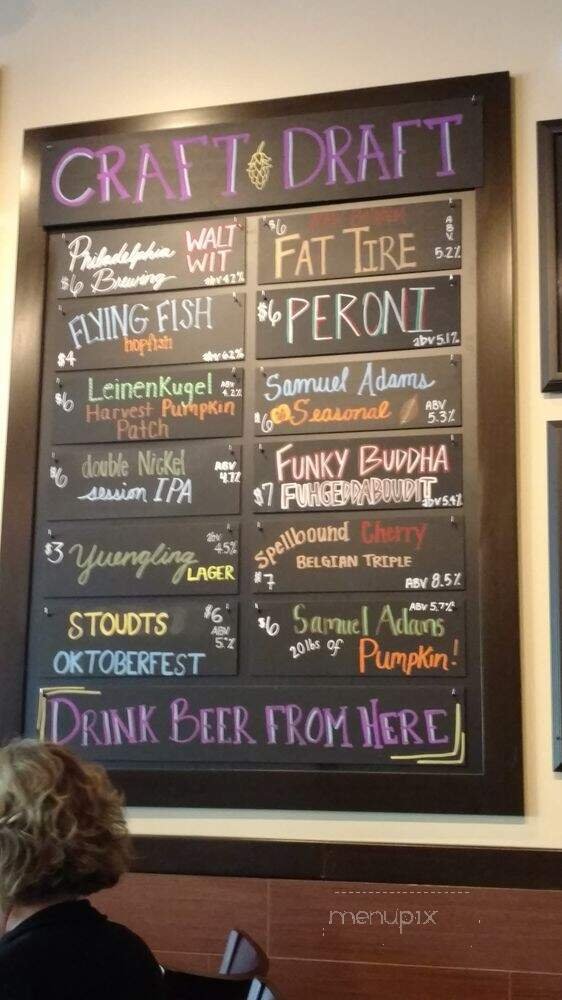 CRAFT DRAFT
Philadelphia WALT
$6 Brewing WIT
abv 4.2%
FLYING FISH
hopfish
$4 abv 6.2%
LeinenKugel ABV
$6 4.2%
Harvest Pumpkin
Patch
double Nickel ABV
$6 4.7%
session IPA
$3 Yuengling abv
4.5%
LAGER
STOUDTS $6
ABV
5%
OKTOBERFEST
$6
FAT TIRE ABV
5.2%
$6 PERONI
abv 5.1%
Samuel Adams
$6 Seasonal ABV
5.3%
FUNKY BUDDHA
$7 FUHGEDDABOUDIT
abv 5.4%
Spellbound Cherry
BELGIAN TRIPLE
$7 ABV 8.5%
ABV 5.7%
$6 Samuel Adams
20lbs of Pumpkin!
DRINK BEER FROM HERE
menupix